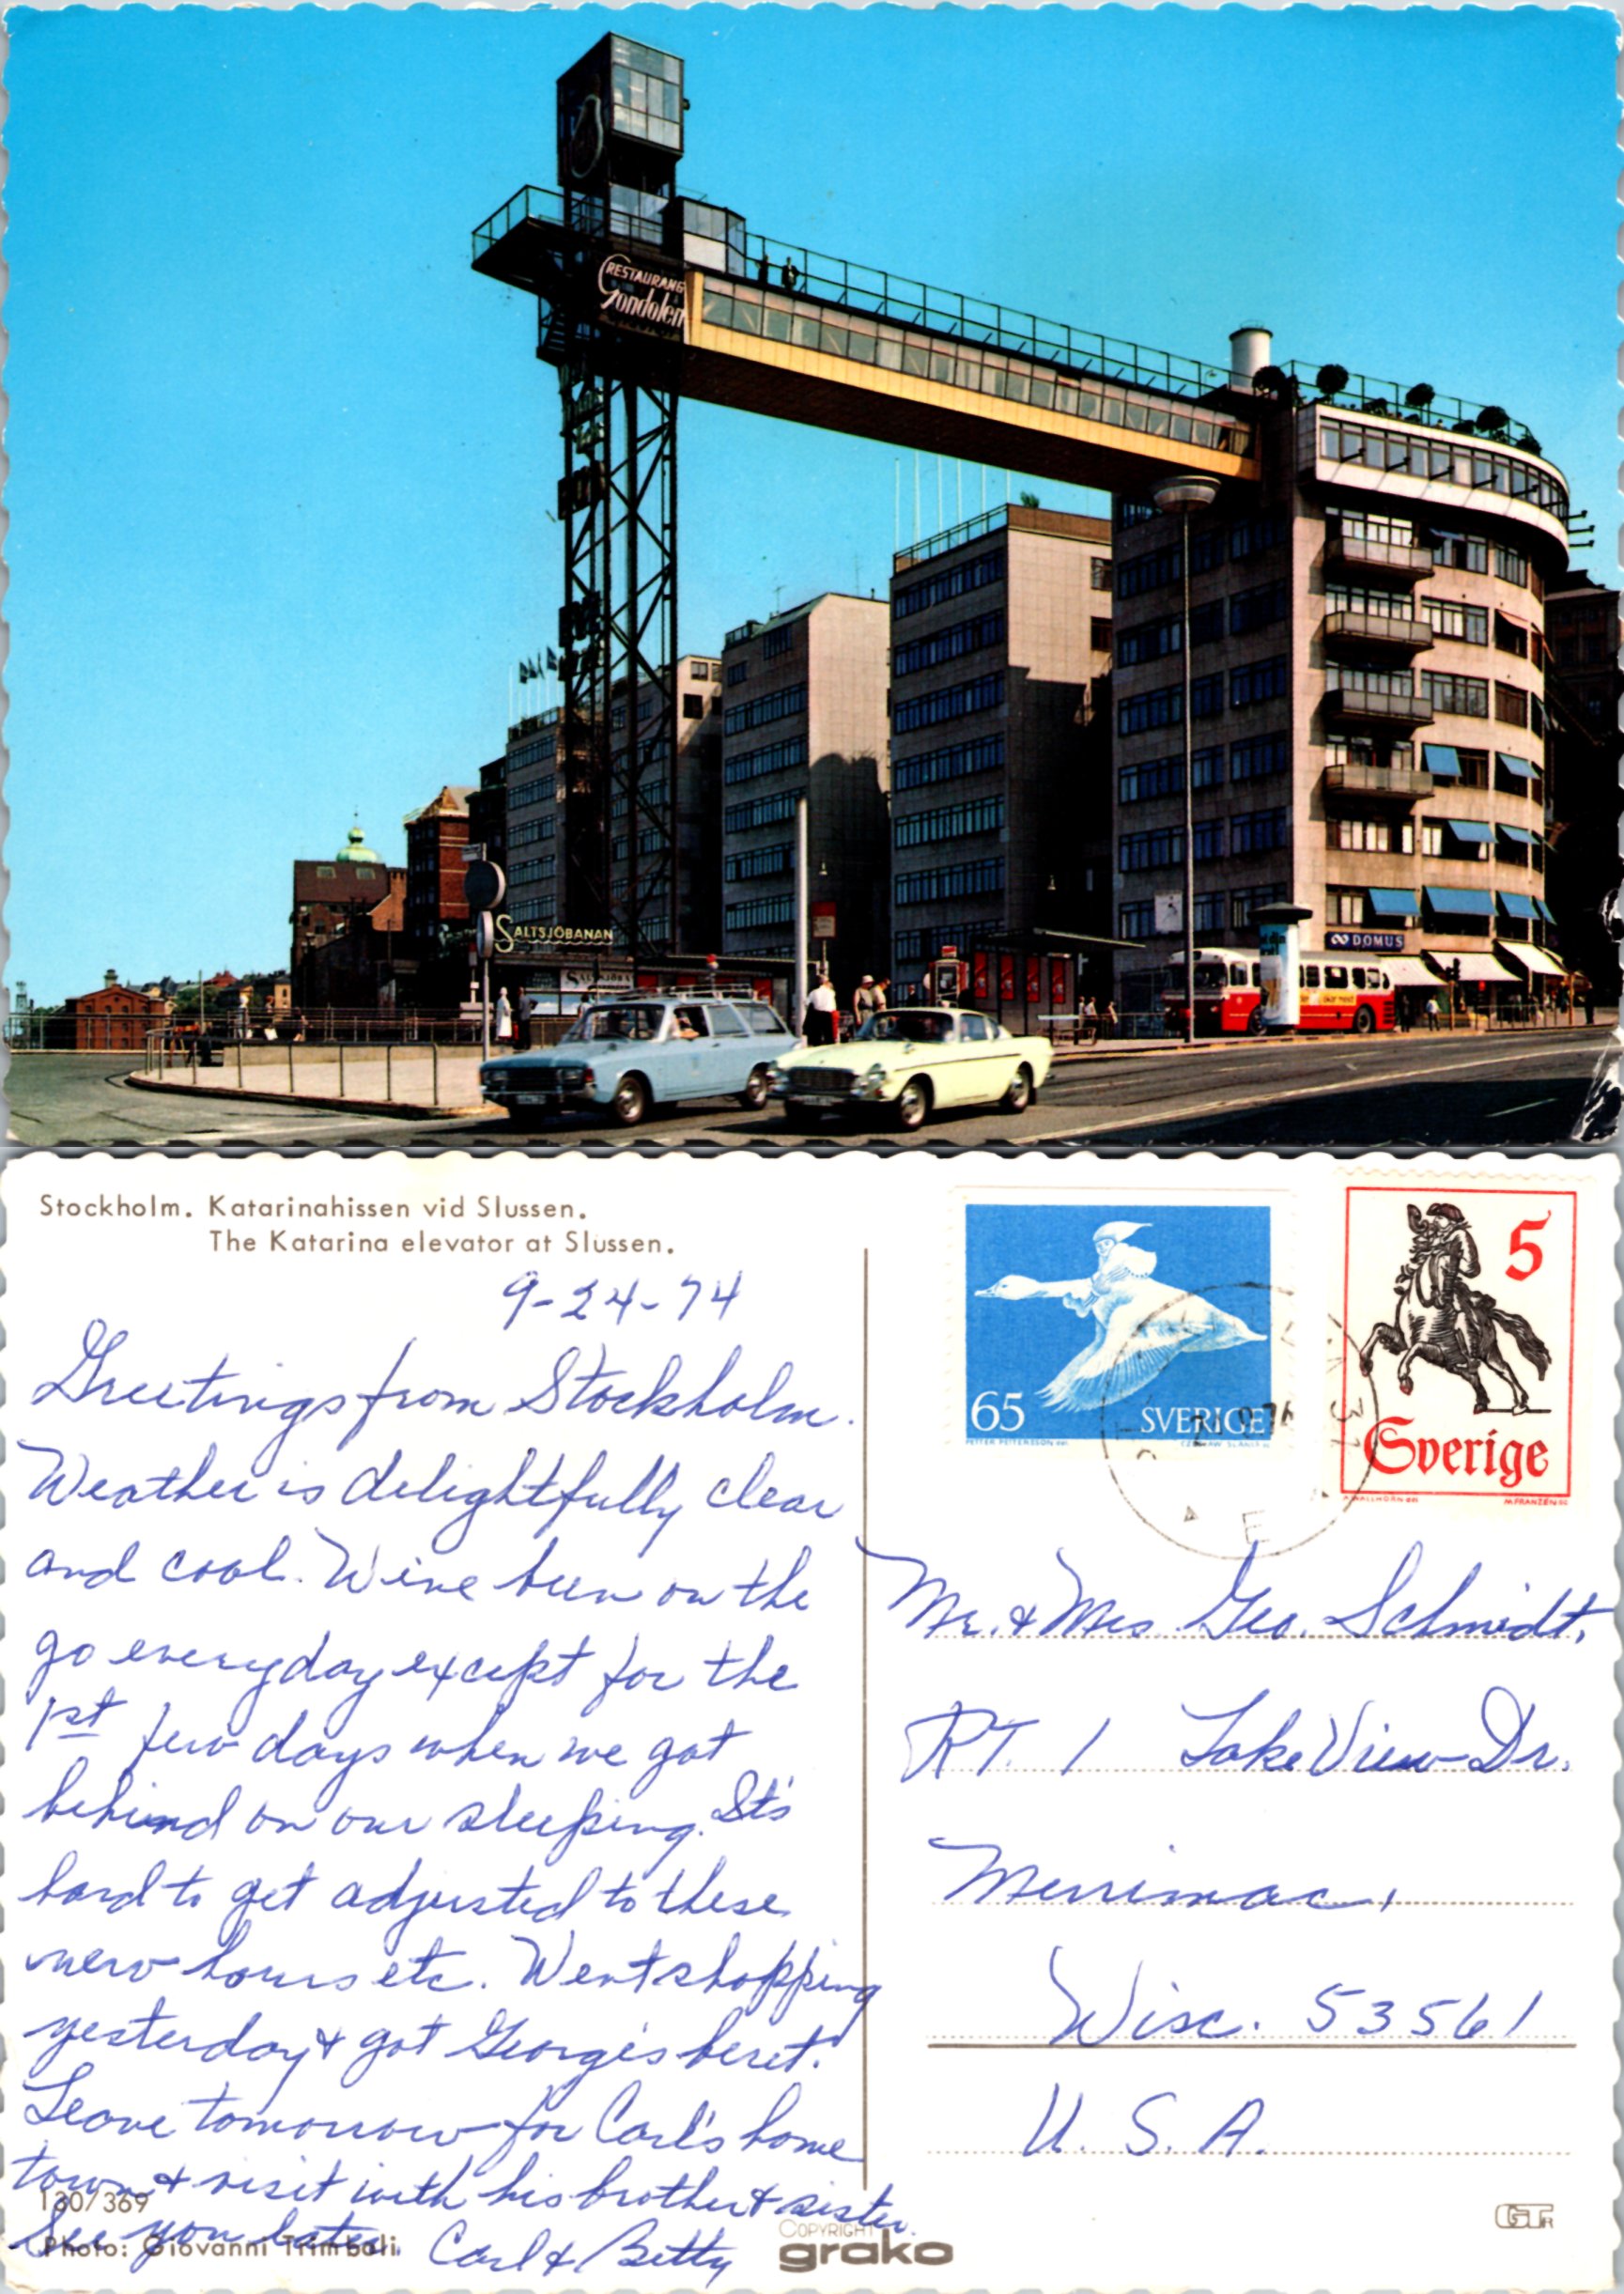 RESTAURANG
Gondolen
SALTSJÖBANAN
DOMUS
Stockholm. Katarinahissen vid Slussen.
The Katarina elevator at Slussen.
9-24-74
Greetings from Stockholm.
Weather is delightfully clear
and cool. We've been on the
go everyday except for the
1st few days when we got
behind on our sleeping. It's
hard to get adjusted to these
new hours etc. Went shopping
yesterday & got George's beret.
Leave tomorrow for Carl's home
town & visit with his brother & sister.
See you later. Carl & Betty
130/369
Photo: Giovanni Trimboli
COPYRIGHT
grako
65
SVERIGE
5
Sverige
M. FRANZEN SC
Mr. & Mrs. Geo. Schmidt,
RT. 1 Lake View Dr.
Merrimac,
Wisc. 53561
U. S. A.